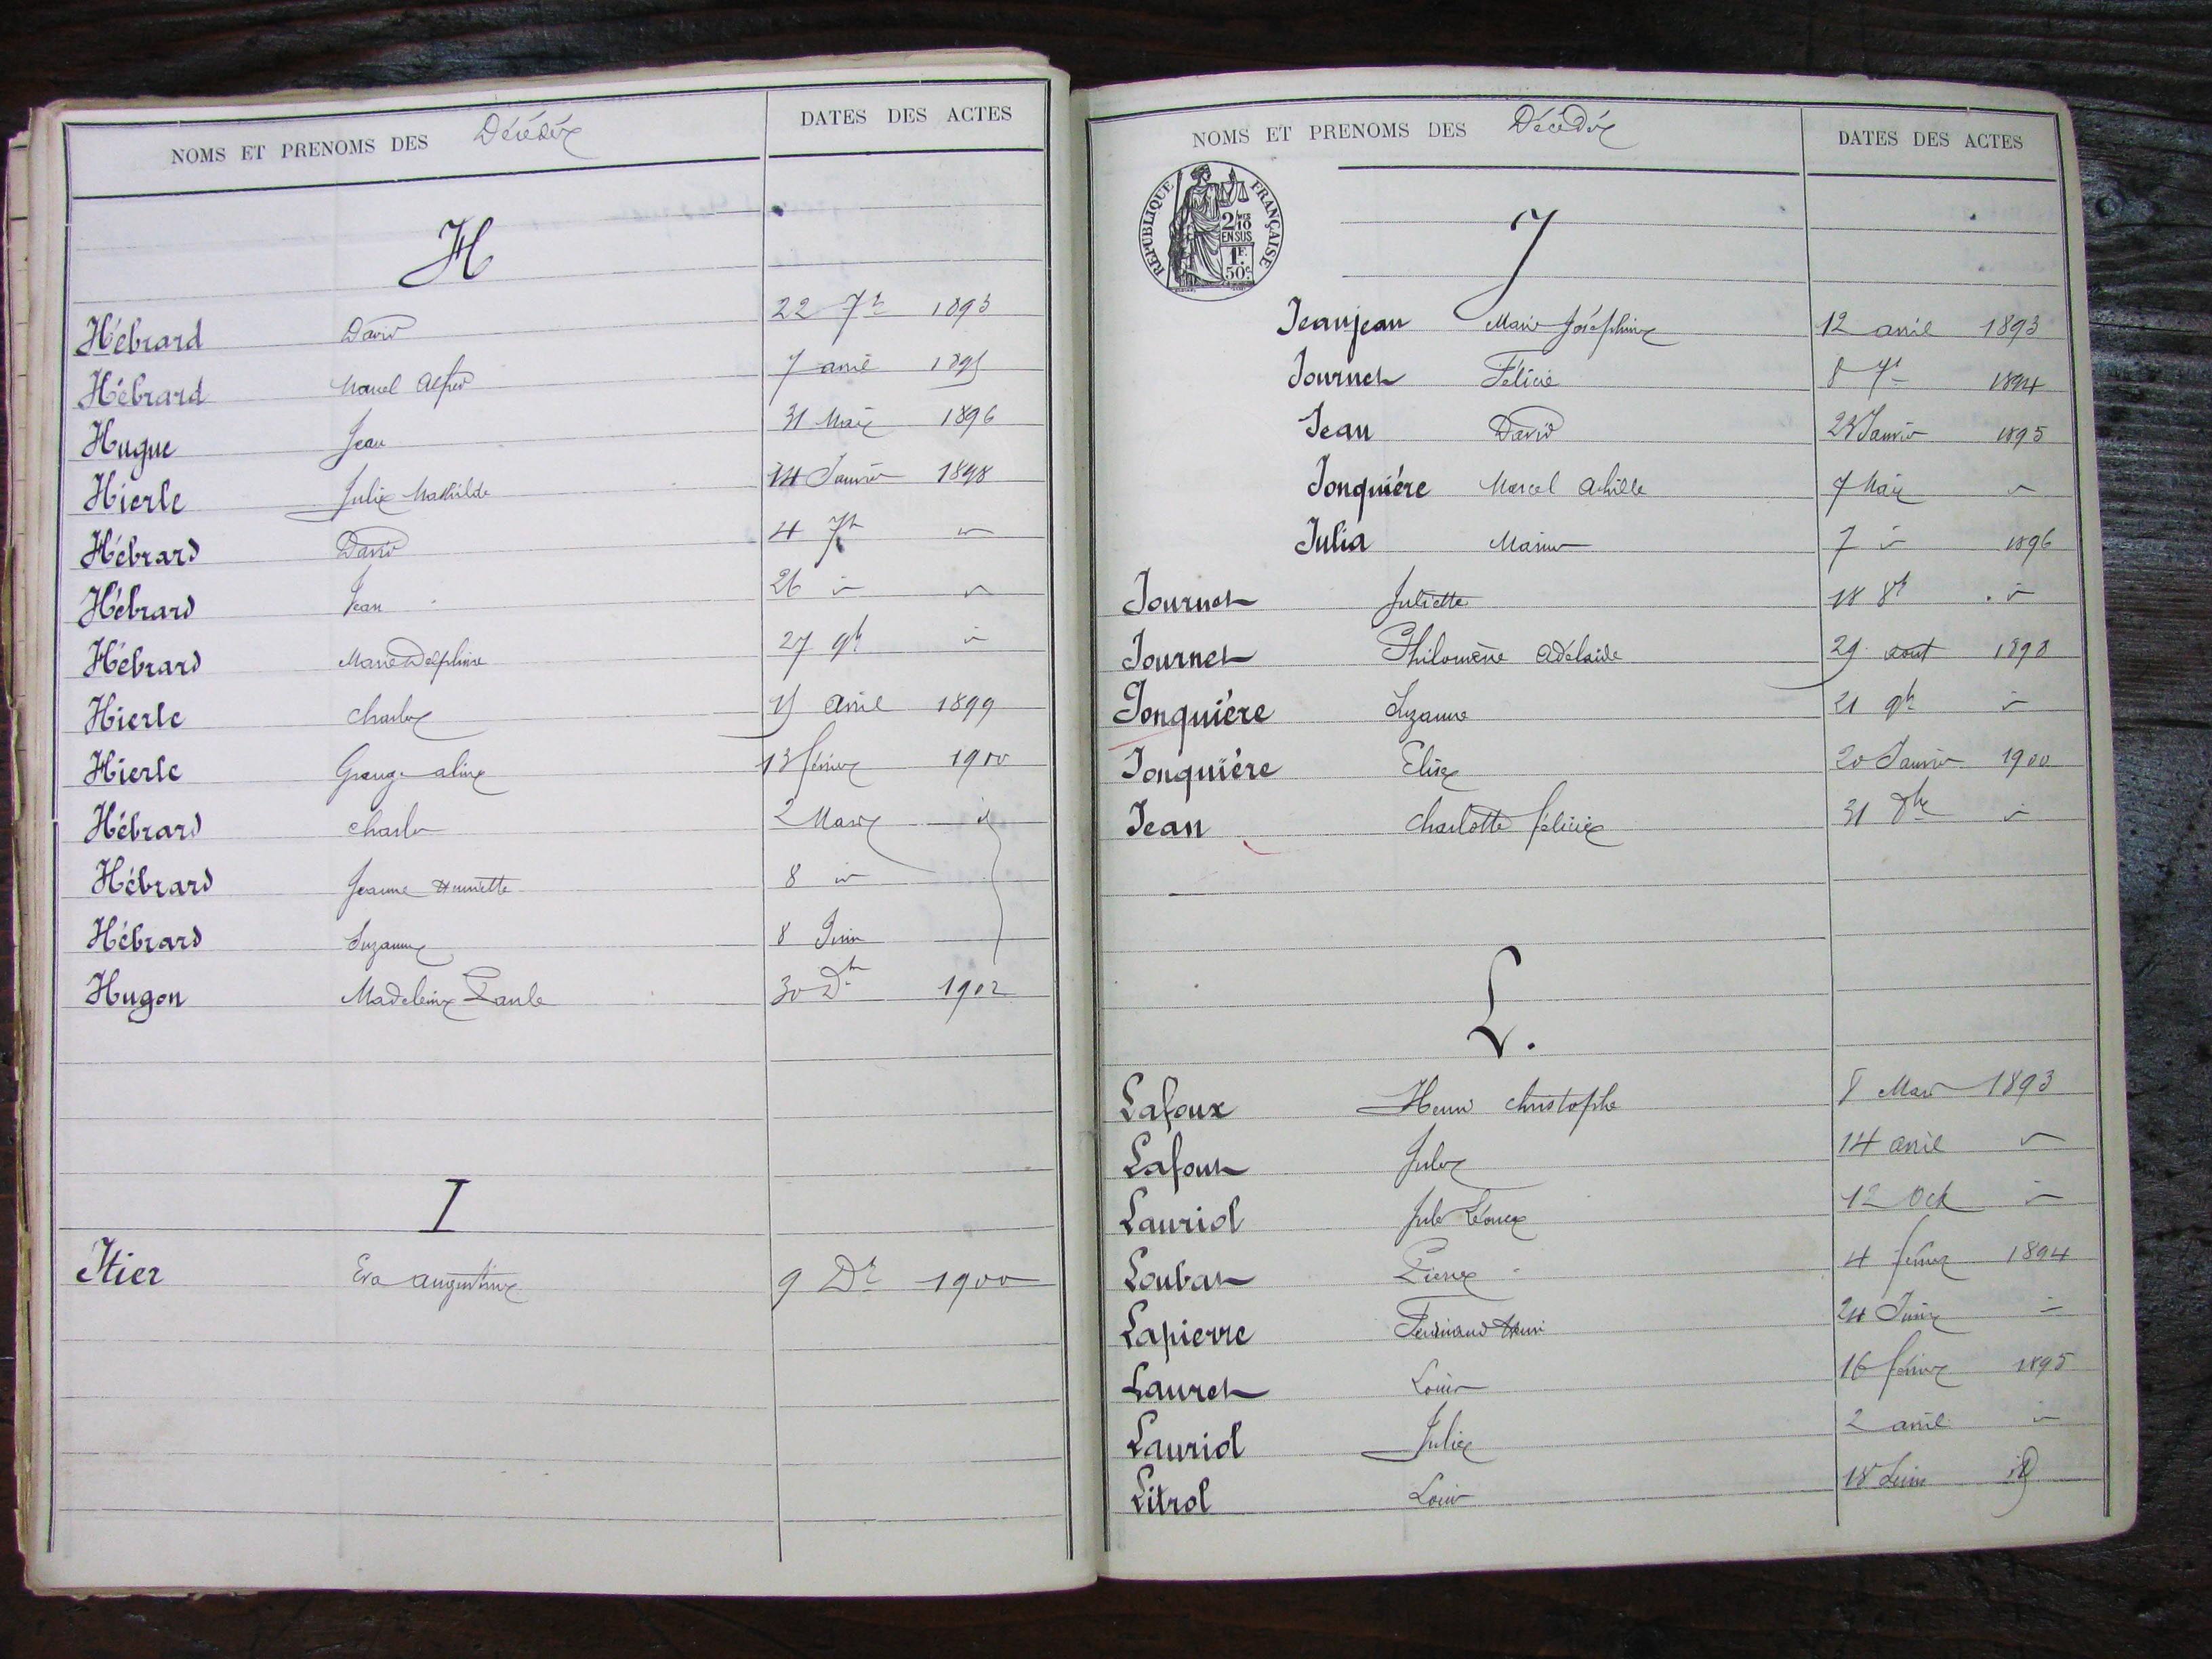 NOMS ET PRENOMS DES Décédés DATES DES ACTES
H
Hébrard David 22 7bre 1893
Hébrard Marcel Alfred 7 avril 1895
Hugue Jean 31 Mai 1896
Hierle Julie Mathilde 14 Janvier 1898
Hébrard David 4 7bre
Hébrard Jean 26
Hébrard Marie Delphine 27 9bre
Hierle Charles avril 1899
Hierle aline 13 février 1900
Hébrard Charles 2 Mars id
Hébrard Jeanne Henriette 8
Hébrard Suzanne 8 Juin
Hugon Madeleine Paule 30 Dbre 1902
I
Itier Eva augustine 9 Dbre 1900
NOMS ET PRENOMS DES Décédés DATES DES ACTES
RÉPUBLIQUE FRANÇAISE
2/10
EN SUS
1F.
50c.
J
Jeanjean Marie Joséphine 12 avril 1893
Journet Félicie 8 7bre 1894
Jean David Janvier 1895
Jonquière Marcel Achille 7 Mai
Julia Marius 7 1896
Journet Juliette 18 8bre
Journet Philomène Adélaïde 29 aout 1898
Jonquière Suzanne 21 9bre
Jonquière Elise 20 Janvier 1900
Jean Charlotte félicie 31
L.
Lafoux Henri Christophe 8 Mars 1893
Lafoux Jules 14 avril
Lauriol Jules Léonce 12 Oct
Loubat Pierre 4 février 1894
Lapierre Ferdinand Henri 24 Juin
Lauret Louis 16 février 1895
Lauriol Julie 2 avril
Litrol Louis 18 Juin id